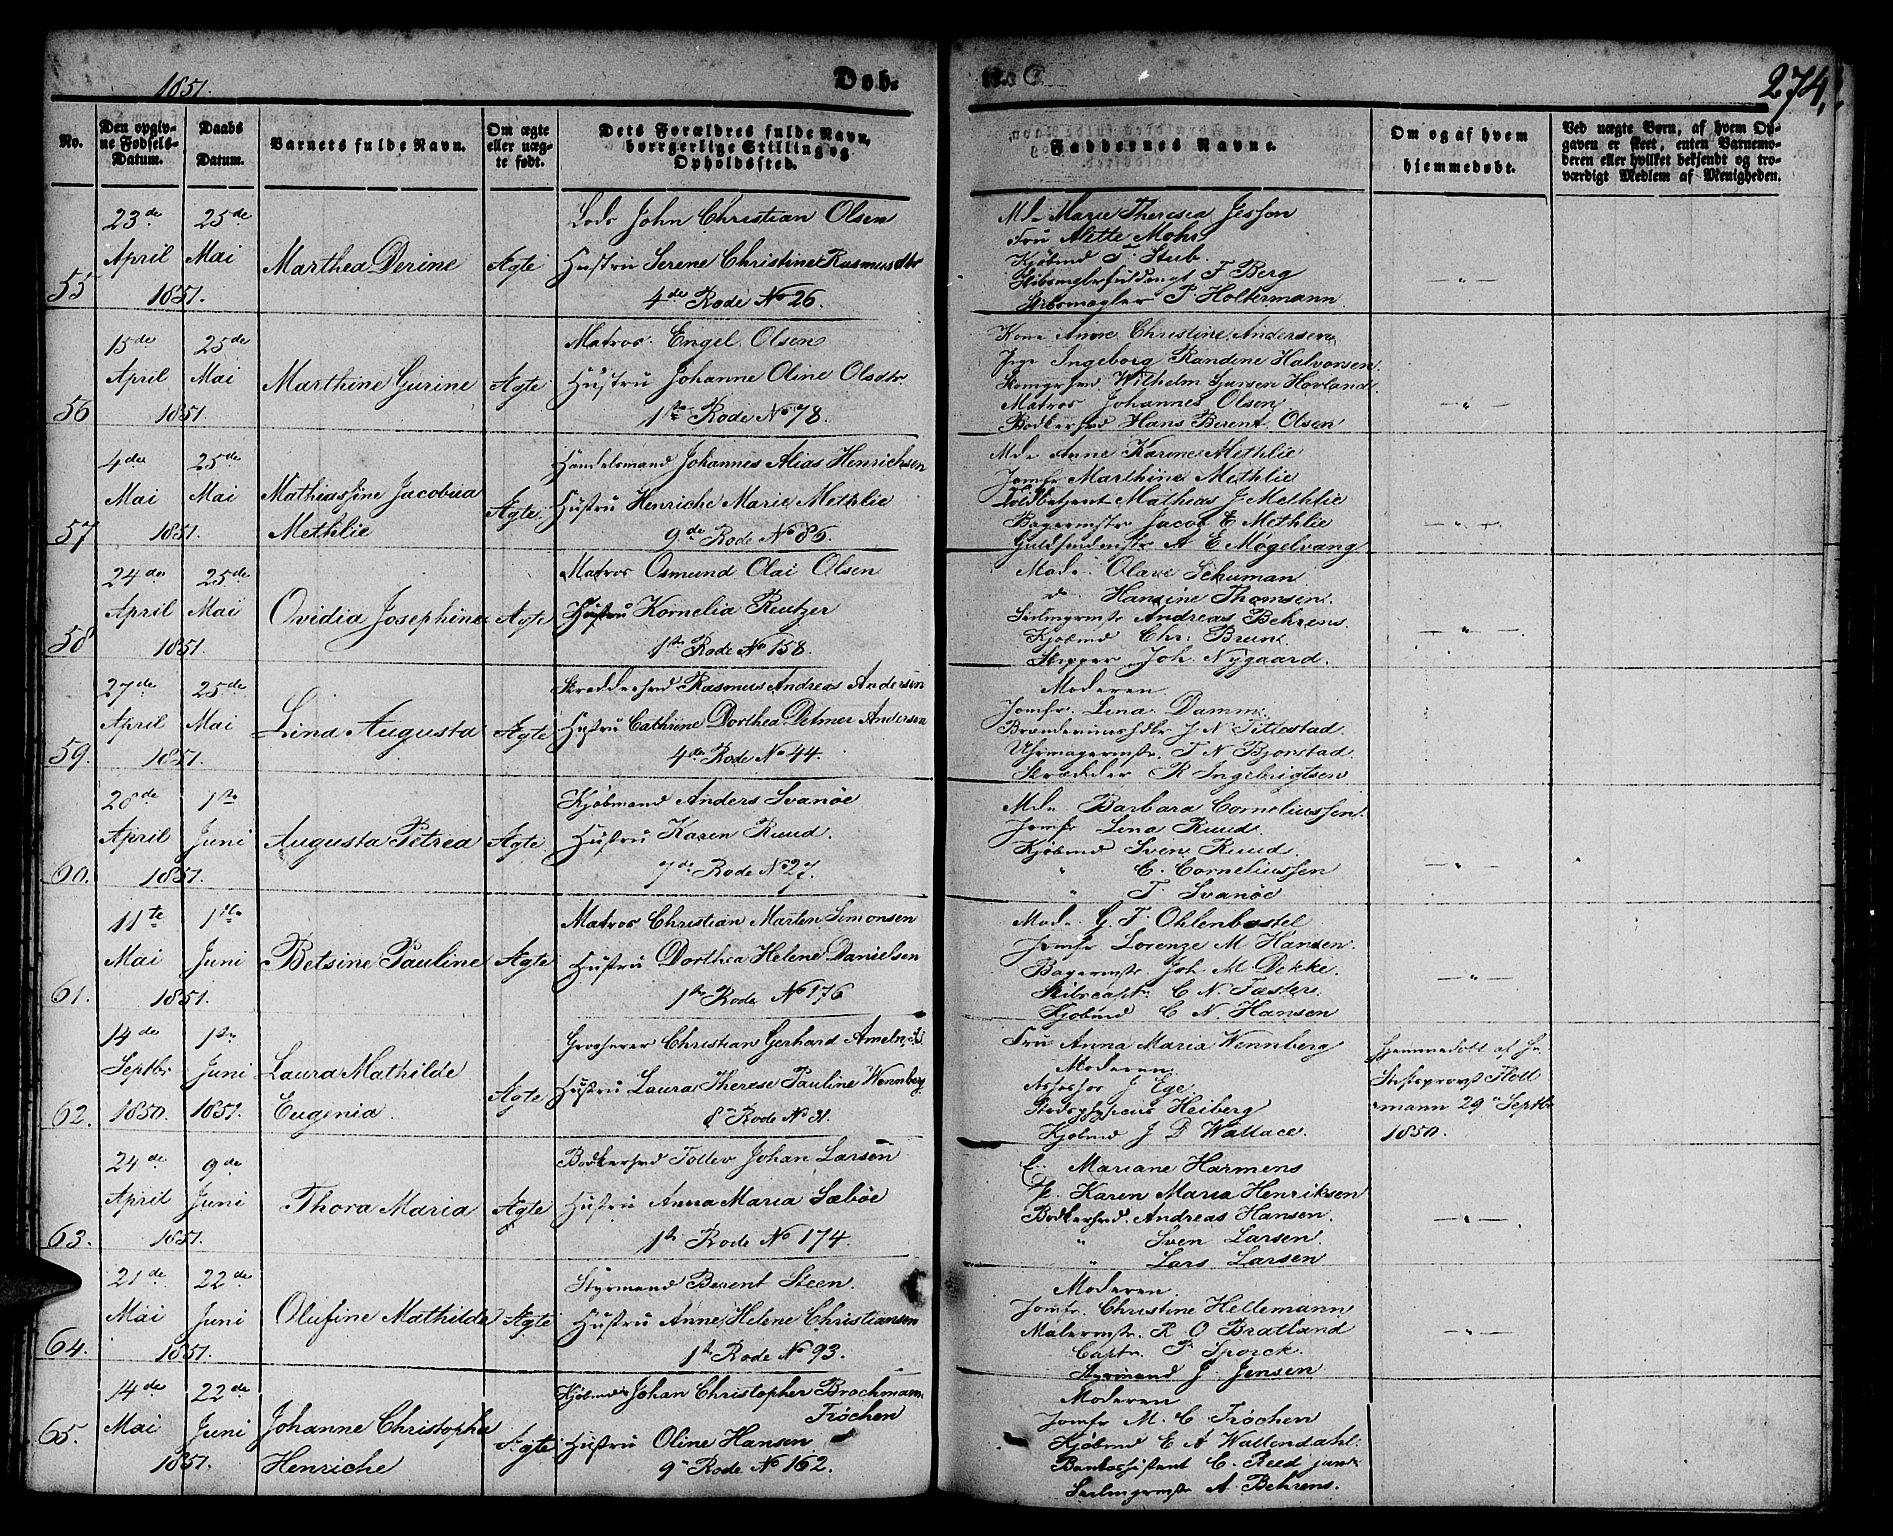 1851.
Døb-
te.
274.
No.
Den opgiv-
ne Fødsels-
Datum.
Daabs
Datum.
Barnets fulde Navn.
Om ægte
eller uæg-
te født.
Dets Forældres fulde Navn,
borgerlige Stilling og
Opholdssted.
Faddernes Navne.
Om og af hvem
hjemmedøbt.
Ved uægte Børn, af hvem Op-
gaven er skeet, enten Barnemo-
deren eller hvilket bekjendt og tro-
værdigt Medlem af Menigheden.
55
23de April 1851.
25de Mai
Marthea Derine
Ægte
Lods John Christian Olsen
Hustru Serene Christine Rasmusdtr
4de Rode No 26.
Mde Marie Theresia Jesson
Fru Alette Mohr
Kjøbmd T Stub.
F Berg
Skibsmægler P Holtermann.
56
15de April 1851.
25de Mai
Marthine Gurine
Ægte
Matros Engel Olsen
Hustru Johanne Oline Olsdtr
1ste Rode No 78.
Kone Anne Christine Andersen
Pige Ingeborg Randine Halvorsen.
Wilhelm Hovland
Matros Johannes Olsen
Bødkersvd Hans Berent Olsen
57
4de Mai 1851.
25de Mai
Mathiasfine Jacobia
Methlie
Ægte.
Handelsmand Johannes Alias Henrichsen
Hustru Henriche Marie Methlie
9de Rode No 86.
Mde Anne Karine Methlie
Jomfr Marthine Methlie
Toldbetjent Mathias J. Methlie
Bagermstr Jacob E Methlie
A E Møgelvang
58
24de April 1851.
25de Mai
Ovidia Josephine
Ægte
Matros Osmund Olai Olsen
Hustru Kornelia Reutzer
1ste Rode No 158.
Mode. Olave Schuman
d. Hansine Thomsen.
Seilmgrmstr Andreas Behrens.
Kjøbmd Chr. Brun.
Skipper Joh. Nygaard.
59.
27de April 1851.
25de Mai
Lina Augusta
Ægte
Skræddersvd Rasmus Andreas Andersen
Hustru Cathrine Dorthea Detmer Andersen
4de Rode No 44.
Moderen
Jomfr. Lina Damm.
J N Tittestad.
Uhrmagermstr. T N Bjonstad.
Skrædder R Ingebrigtsen
60.
28de April 1851.
1ste Juni
Augusta Petrea
Ægte
Kjøbmand Anders Svanøe
Hustru Karen Ruud.
7de Rode No 27.
Mde Barbara Corneliussen.
Jomfr Lina Ruud.
Kjøbmd Sven Ruud.
" C. Corneliussen
" T. Svanøe
61.
11te Mai 1851.
1ste Juni
Betsine Pauline
Ægte
Matros Christian Marten Simonsen
Hustru Dorthea Helene Danielsen
1ste Rode No 176
Mode. G. T. Ohlenbostel
Jomfr Lorenze M Hansen.
Bagermstr Joh. M Dekke.
Skibscapt. C N. Fasters.
Kjøbmd C N. Hansen
62.
14de Septbr 1850.
1ste Juni 1851.
Laura Mathilde
Eugenia.
Ægte
Grosserer Christian Gerhard Ameln
Hustru Laura Therese Pauline Wennberg
8de Rode No 31.
Fru Anna Maria Wennberg
Moderen.
Assessor J Ege
Stadsphysicus Heiberg
Kjøbmd J D Wallace.
Hjemmedøbt af Hr
Stiftsprovst
29de Septbr
1850.
63.
24de April 1851.
9de Juni
Thora Maria
Ægte
Bødkersvd Tollev Johan Larsen
Hustru Anna Maria Sæbøe
1ste Rode No 174.
Mariane Harmens
Karen Maria Henriksen
Bødkersvd. Andreas Hansen.
" Sven Larsen
" Lars Larsen
64.
21de Mai 1851.
22de Juni
Olufine Mathilde
Ægte
Styrmand Berent Steen.
Hustru Anne Helene Christiansen
1ste Rode No 93.
Moderen.
Jomfr. Christine Hellemann
Malermstr. R O Bratland
Captn. P. Sporck.
Styrmand J Jensen
65.
14de Mai 1851.
22de Juni
Johanne Christophe
Henriche
Ægte
Kjøbmd Johan Christopher Brochmann
Frøchen
Hustru Oline Hansen
9de Rode No 162.
Moderen
Jomfr M. C Frøchen
Kjøbmd E A Wallendahl.
C. Reed junr
Seilmgrmstr A. Behrens.